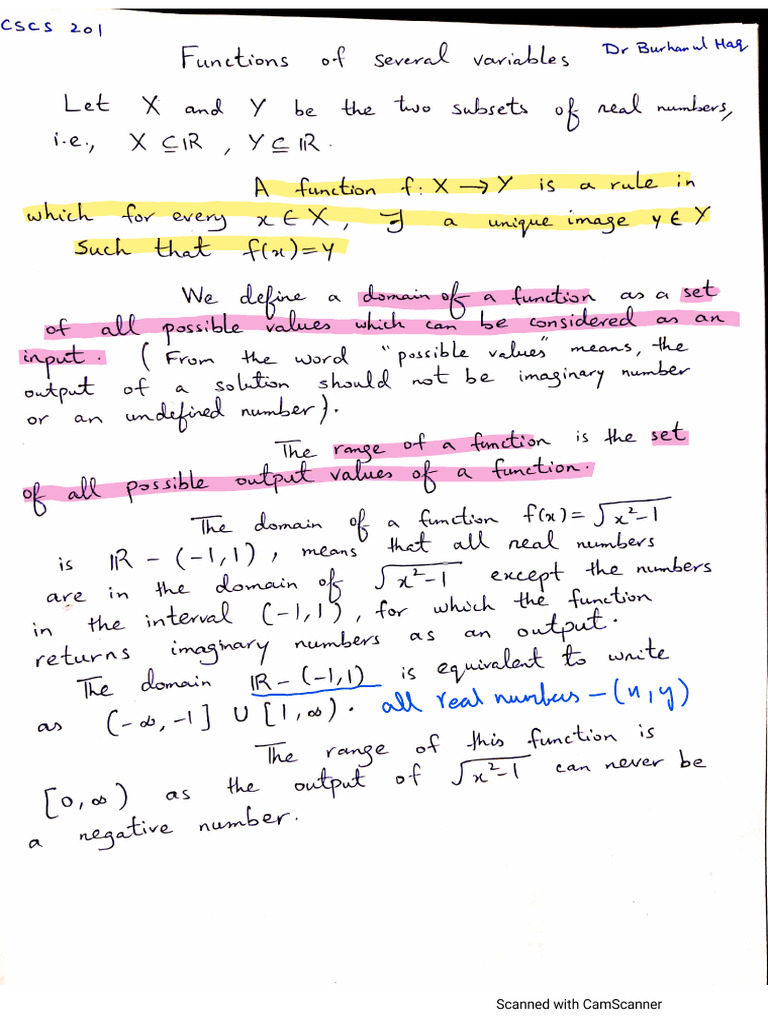 CSCS 201
Functions of several variables
Dr Burhan ul Haq
Let X and Y be the two subsets of real numbers,
i.e., X ⊆ ℝ , Y ⊆ ℝ.
A function f: X → Y is a rule in
which for every x ∈ X, ∃ a unique image y ∈ Y
such that f(x) = y
We define a domain of a function as a set
of all possible values which can be considered as an
input. (From the word "possible values" means, the
output of a solution should not be imaginary number
or an undefined number).
The range of a function is the set
of all possible output values of a function.
The domain of a function f(x) = √(x²-1)
is ℝ - (-1,1), means that all real numbers
are in the domain of √(x²-1) except the numbers
in the interval (-1,1), for which the function
returns imaginary numbers as an output.
The domain ℝ - (-1,1) is equivalent to write
as (-∞,-1] ∪ [1,∞). all real numbers - (x,y)
The range of this function is
[0,∞) as the output of √(x²-1) can never be
a negative number.
Scanned with CamScanner